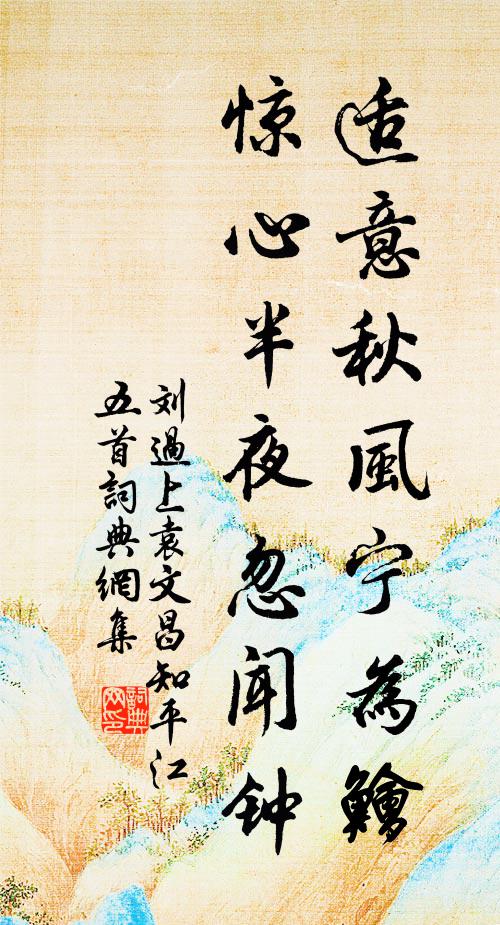 适意秋風宁為鱠
惊心半夜忽闻钟
刘過上袁文昌知平江
五首詞典網集
詞典網印